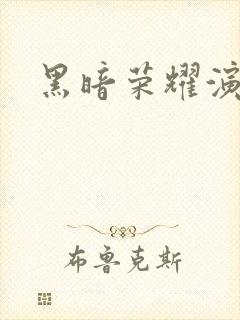 黑暗荣耀演
布鲁克斯